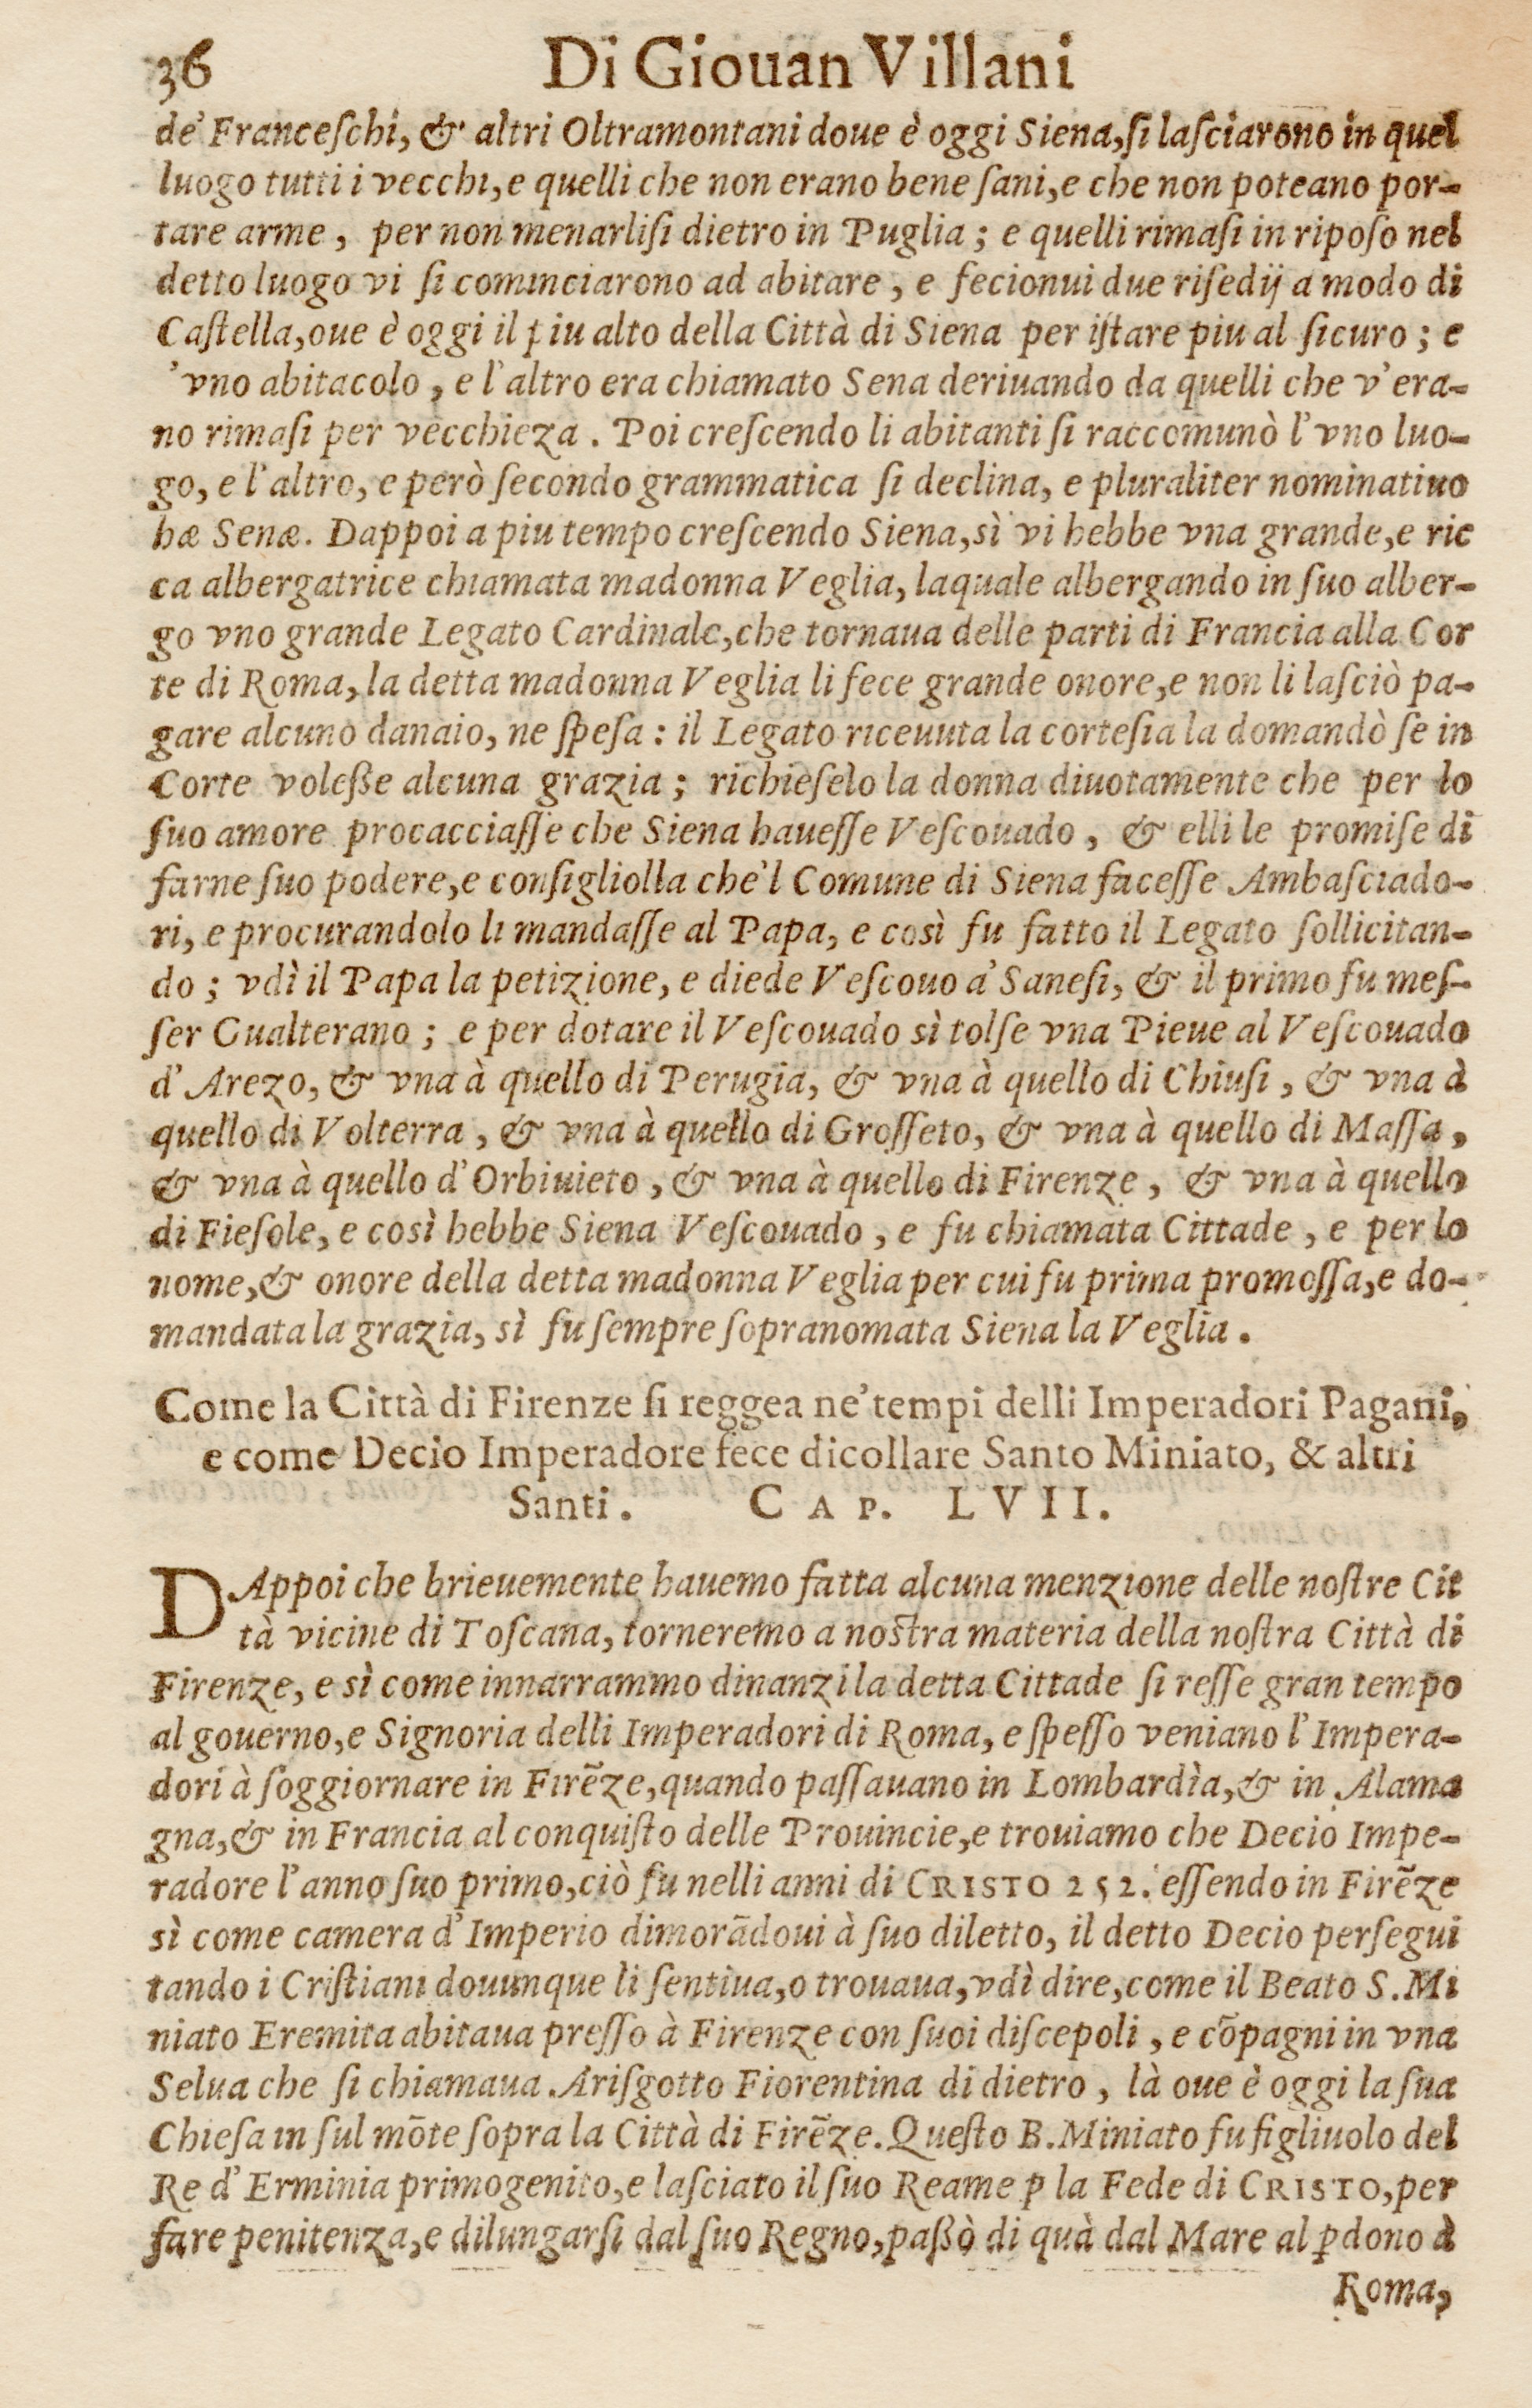 36 Di Giouan Villani
de' Franceſchi, & altri Oltramontani doue è oggi Siena, ſi laſciarono in quel
luogo tutti i vecchi, e quelli che non erano bene ſani, e che non poteano por-
tare arme, per non menarliſi dietro in Puglia; e quelli rimaſi in ripoſo nel
detto luogo vi ſi cominciarono ad abitare, e fecionui due riſedij a modo di
Caſtella, oue è oggi il piu alto della Città di Siena per iſtare piu al ſicuro; e
'vno abitacolo, e l'altro era chiamato Sena deriuando da quelli che v'era-
no rimaſi per vecchieza. Poi creſcendo li abitanti ſi raccomunò l'vno luo-
go, e l'altro, e però ſecondo grammatica ſi declina, e pluraliter nominatiuo
hæ Senæ. Dappoi a piu tempo creſcendo Siena, sì vi hebbe vna grande, e ric
ca albergatrice chiamata madonna Veglia, laquale albergando in ſuo alber-
go vno grande Legato Cardinale, che tornaua delle parti di Francia alla Cor
te di Roma, la detta madonna Veglia li fece grande onore, e non li laſciò pa-
gare alcuno danaio, ne ſpeſa: il Legato riceuuta la corteſia la domandò ſe in
Corte voleße alcuna grazia; richieſelo la donna diuotamente che per lo
ſuo amore procacciaſſe che Siena haueſſe Veſcouado, & elli le promiſe di
farne ſuo podere, e conſigliolla che'l Comune di Siena faceſſe Ambaſciado-
ri, e procurandolo li mandaſſe al Papa, e così fu fatto il Legato ſollicitan-
do; vdì il Papa la petizione, e diede Veſcouo a' Saneſi, & il primo fu meſ-
ſer Gualterano; e per dotare il Veſcouado sì tolſe vna Pieue al Veſcouado
d'Arezo, & vna à quello di Perugia, & vna à quello di Chiuſi, & vna à
quello di Volterra, & vna à quello di Groſſeto, & vna à quello di Maſſa,
& vna à quello d'Orbiuieto, & vna à quello di Firenze, & vna à quello
di Fieſole, e così hebbe Siena Veſcouado, e fu chiamata Cittade, e per lo
nome, & onore della detta madonna Veglia per cui fu prima promoſſa, e do-
mandata la grazia, sì fu ſempre ſopranomata Siena la Veglia.
Come la Città di Firenze ſi reggea ne' tempi delli Imperadori Pagani,
e come Decio Imperadore fece dicollare Santo Miniato, & altri
Santi. CAP. LVII.
DAppoi che brieuemente hauemo fatta alcuna menzione delle noſtre Cit
tà vicine di Toſcana, torneremo a noſtra materia della noſtra Città di
Firenze, e sì come innarrammo dinanzi la detta Cittade ſi reſſe gran tempo
al gouerno, e Signoria delli Imperadori di Roma, e ſpeſſo veniano l'Impera-
dori à ſoggiornare in Firẽze, quando paſſauano in Lombardìa, & in Alama
gna, & in Francia al conquiſto delle Prouincie, e trouiamo che Decio Impe-
radore l'anno ſuo primo, ciò fu nelli anni di CRISTO 252. eſſendo in Firẽze
sì come camera d'Imperio dimorãdoui à ſuo diletto, il detto Decio perſegui
tando i Criſtiani douunque li ſentiua, o trouaua, vdì dire, come il Beato S. Mi
niato Eremita abitaua preſſo à Firenze con ſuoi diſcepoli, e cõpagni in vna
Selua che ſi chiamaua Ariſgotto Fiorentina di dietro, là oue è oggi la ſua
Chieſa in ſul mõte ſopra la Città di Firẽze. Queſto B. Miniato fu figliuolo del
Re d'Erminia primogenito, e laſciato il ſuo Reame p la Fede di CRISTO, per
fare penitenza, e dilungarſi dal ſuo Regno, paßò di quà dal Mare al ꝑdono à
Roma,